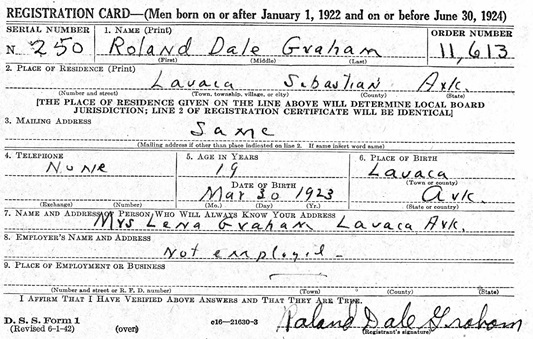 REGISTRATION CARD—(Men born on or after January 1, 1922 and on or before June 30, 1924)
SERIAL NUMBER 1. NAME (Print) ORDER NUMBER
N 250 Roland Dale Graham 11,613
(First) (Middle) (Last)
2. PLACE OF RESIDENCE (Print)
Lavaca Sebastian Ark.
(Number and street) (Town, township, village, or city) (County) (State)
[THE PLACE OF RESIDENCE GIVEN ON THE LINE ABOVE WILL DETERMINE LOCAL BOARD
JURISDICTION; LINE 2 OF REGISTRATION CERTIFICATE WILL BE IDENTICAL]
3. MAILING ADDRESS
Same
(Mailing address if other than place indicated on line 2. If same insert word same)
4. TELEPHONE 5. AGE IN YEARS 6. PLACE OF BIRTH
None 19 Lavaca
DATE OF BIRTH (Town or county)
Mar 30 1923 Ark.
(Exchange) (Number) (Mo.) (Day) (Yr.) (State or country)
7. NAME AND ADDRESS OF PERSON WHO WILL ALWAYS KNOW YOUR ADDRESS
Mrs Lena Graham Lavaca Ark.
8. EMPLOYER'S NAME AND ADDRESS
Not employed -
9. PLACE OF EMPLOYMENT OR BUSINESS
(Number and street or R. F. D. number) (Town) (County) (State)
I AFFIRM THAT I HAVE VERIFIED ABOVE ANSWERS AND THAT THEY ARE TRUE.
D. S. S. Form 1
(Revised 6-1-42) (over) c16—21630-3 Roland Dale Graham
(Registrant's signature)